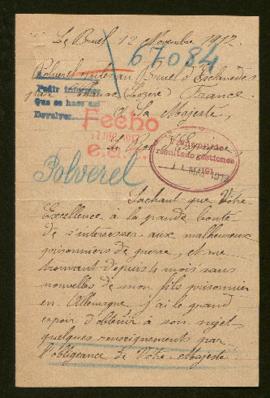 Le Bruel, 12 Novembre 1917
67084
Polverel rentier au Bruel d'Esclanèdes
par (Lozère) France
Pedir informes
Que se hace así
Devolver
A Sa Majesté
Fecho
Polverel
Sachant que Votre
Excellence a la grande bonté
de s'intéresser aux malheureux
prisonniers de guerre, et me
trouvant depuis 4 mois sans
nouvelles de mon fils prisonnier
en Allemagne, j'ai le grand
espoir d'obtenir à son sujet
quelques renseignements par
l'obligeance de Votre Majesté